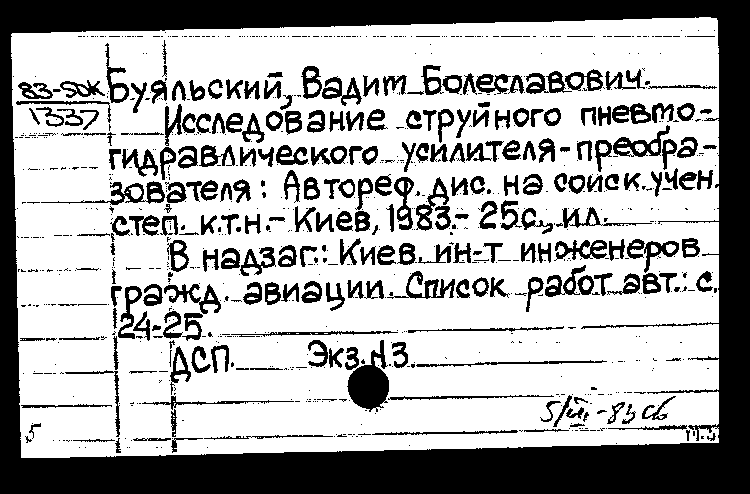 83-5ДК
1337
Буяльский, Вадим Болеславович.
Исследование струйного пневмо-
гидравлического усилителя-преобра-
зователя: Автореф. дис. на соиск. учен.
степ. к.т.н.- Киев, 1983.- 25с., ил.
В надзаг.: Киев. ин-т инженеров
гражд. авиации. Список работ авт.: с.
24-25.
ДСП. Экз.N3.
5/VII-83
5